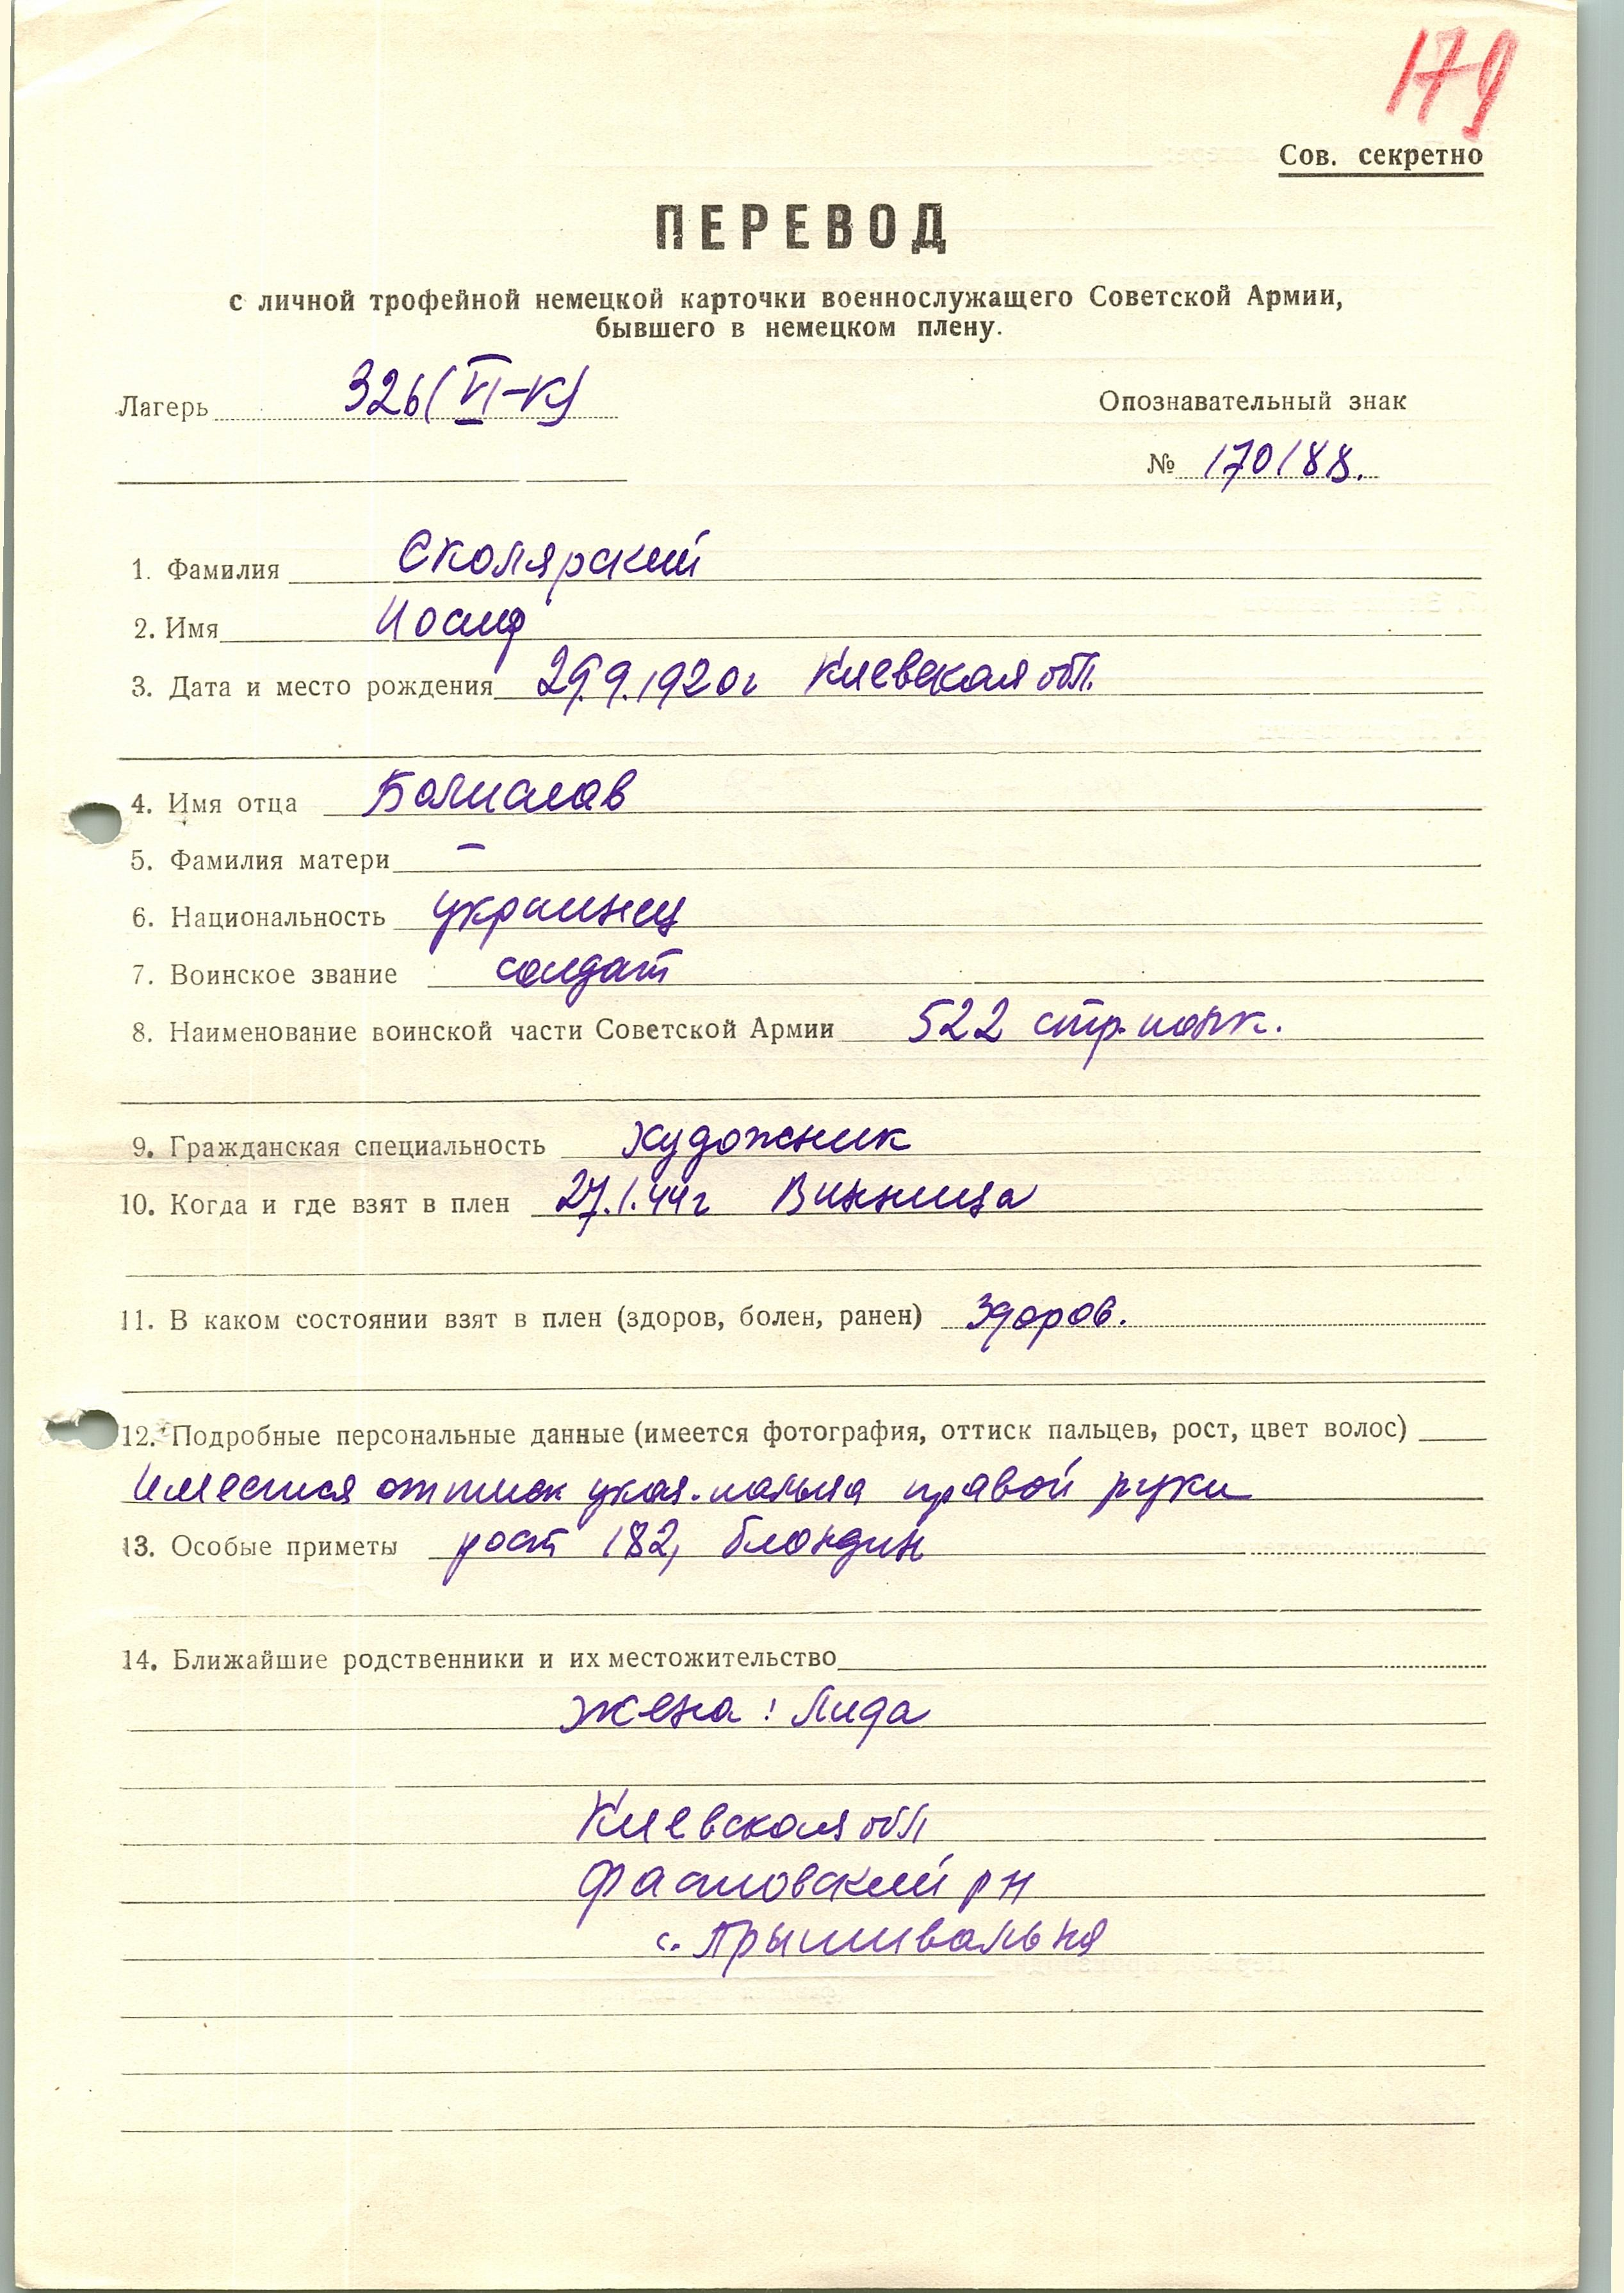 179
Сов. секретно
ПЕРЕВОД
с личной трофейной немецкой карточки военнослужащего Советской Армии,
бывшего в немецком плену.
Лагерь 326 (VI-К)
Опознавательный знак
№ 170188.
1. Фамилия Сколярский
2. Имя Иосиф
3. Дата и место рождения 29.9.1920г Киевская обл.
4. Имя отца Болислав
5. Фамилия матери —
6. Национальность украинец
7. Воинское звание солдат
8. Наименование воинской части Советской Армии 522 стр. полк.
9. Гражданская специальность художник
10. Когда и где взят в плен 27.1.44г Винница
11. В каком состоянии взят в плен (здоров, болен, ранен) Здоров.
12. Подробные персональные данные (имеется фотография, оттиск пальцев, рост, цвет волос)
Имеется оттиск указ. пальца правой руки
13. Особые приметы рост 182, блондин
14. Ближайшие родственники и их местожительство
Жена: Лида
Киевская обл
Фастовский рн
с. Прышивальня